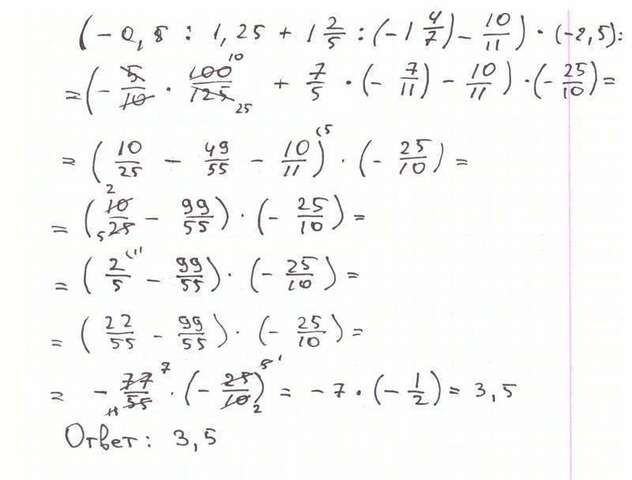 (-0,5 : 1,25 + 1 2/5 : (-1 4/7) - 10/11) · (-2,5) =
= (- 5/10 · 100/125 + 7/5 · (- 7/11) - 10/11) · (- 25/10) =
= (10/25 - 49/55 - 10/11) · (- 25/10) =
= (10/25 - 99/55) · (- 25/10) =
= (2/5 - 99/55) · (- 25/10) =
= (22/55 - 99/55) · (- 25/10) =
= - 77/55 · (- 25/10) = -7 · (- 1/2) = 3,5
Ответ: 3,5